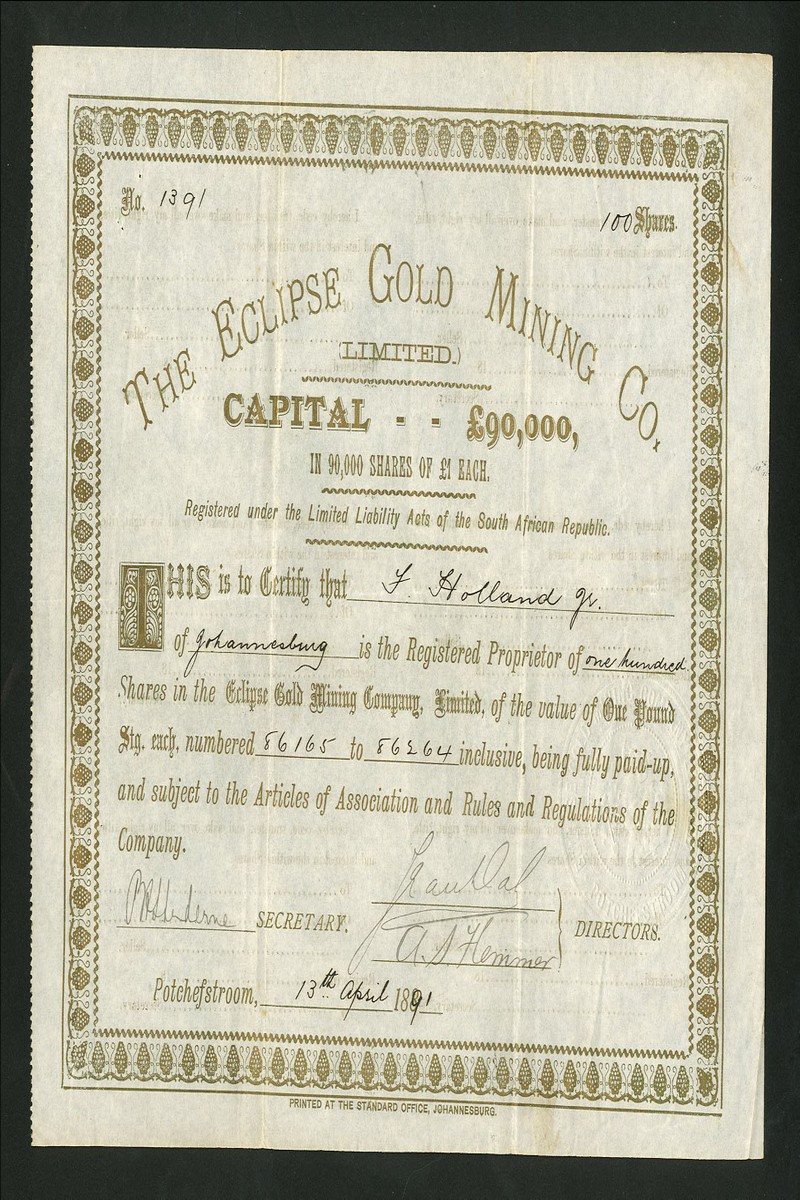 No. 1391
100 Shares.
THE ECLIPSE GOLD MINING CO.
(LIMITED.)
CAPITAL - - £90,000,
IN 90,000 SHARES OF £1 EACH.
Registered under the Limited Liability Acts of the South African Republic.
THIS is to Certify that F. Holland Jr.
of Johannesburg is the Registered Proprietor of one hundred
Shares in the Eclipse Gold Mining Company, Limited, of the value of One Pound
Stg. each, numbered 86165 to 86264 inclusive, being fully paid-up,
and subject to the Articles of Association and Rules and Regulations of the
Company.
SECRETARY.
DIRECTORS.
Potchefstroom, 13th April 1891
PRINTED AT THE STANDARD OFFICE, JOHANNESBURG.